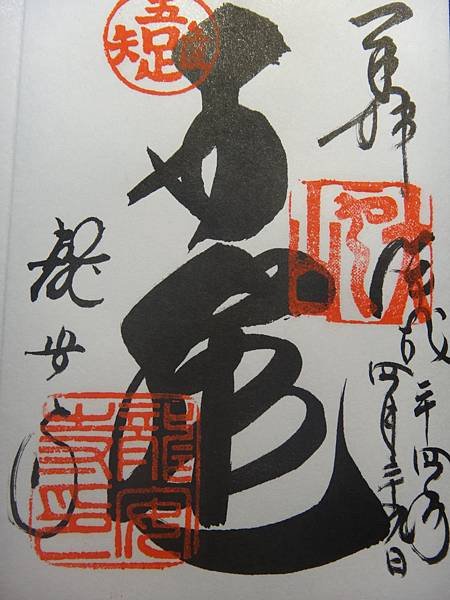 奉拝
平成二十四年
四月二十九日
石庭
龍安寺
吾唯足知
龍安寺印